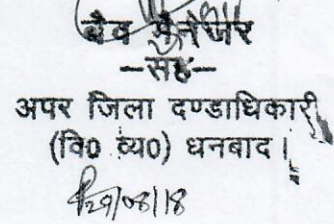 बैंक मैनेजर
-सह-
अपर जिला दण्डाधिकारी,
(वि0 व्य0) धनबाद।
29/08/18